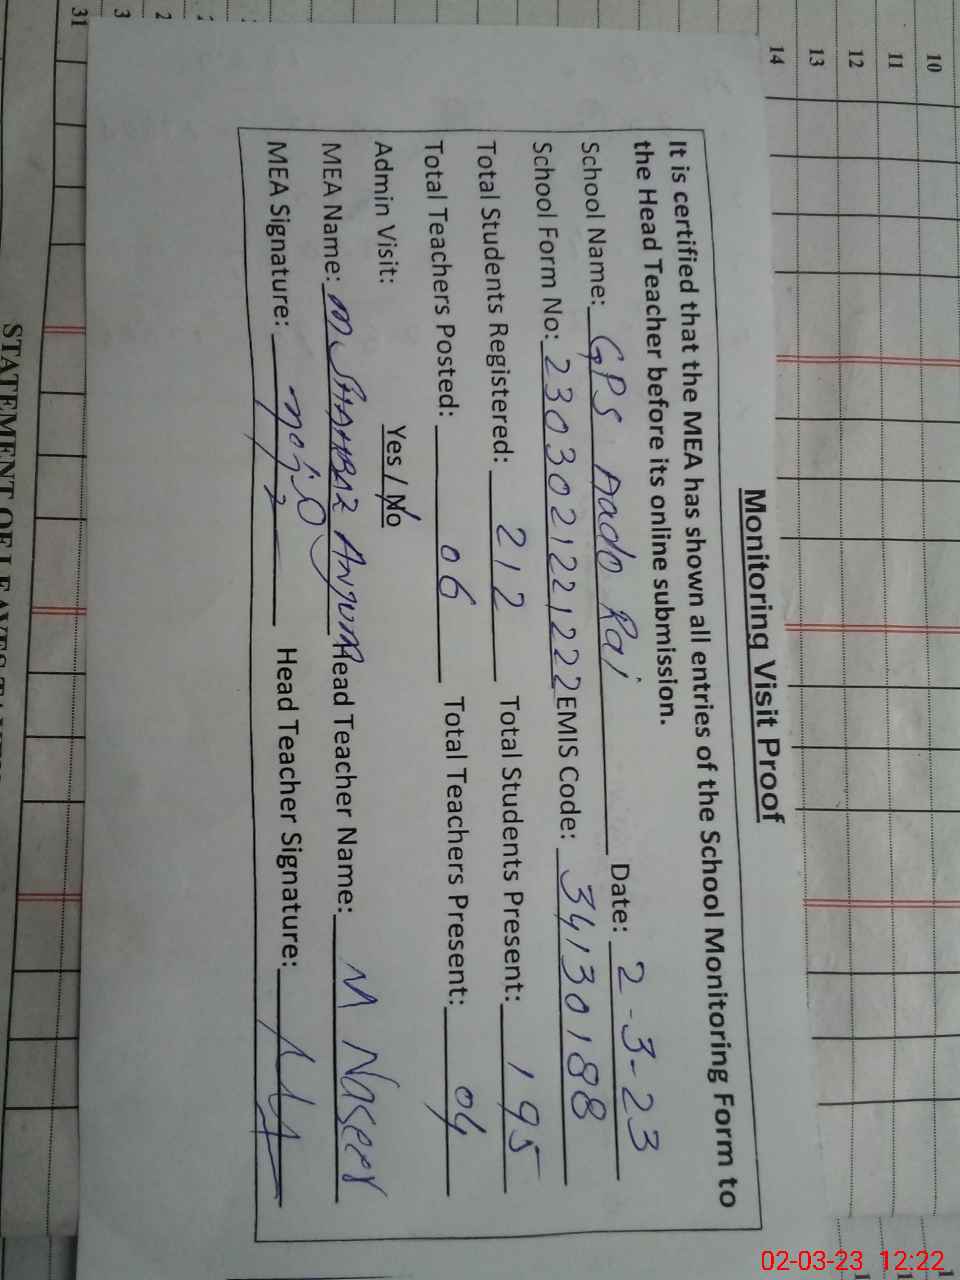 Monitoring Visit Proof
It is certified that the MEA has shown all entries of the School Monitoring Form to
the Head Teacher before its online submission.
School Name: GPS Aado Rai Date: 2-3-23
School Form No: 2303021221222 EMIS Code: 34130188
Total Students Registered: 212 Total Students Present: 195
Total Teachers Posted: 06 Total Teachers Present: 04
Admin Visit: Yes / No
MEA Name: M SHAHBAZ ANJUM Head Teacher Name: M Naseer
MEA Signature: Head Teacher Signature:
10
11
12
13
14
31
3
2
02-03-23 12:22